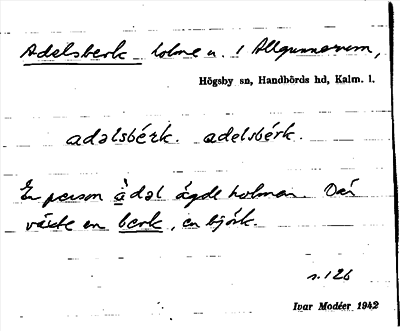 Adelsberk holme u. / Allgunnarum,
Högsby sn, Handbörds hd, Kalm. l.
adəlsbérk. adelsbérk.
En person àdəl ägde holmen. Där
växte en berk, en björk.
s. 126
Ivar Modéer 1942